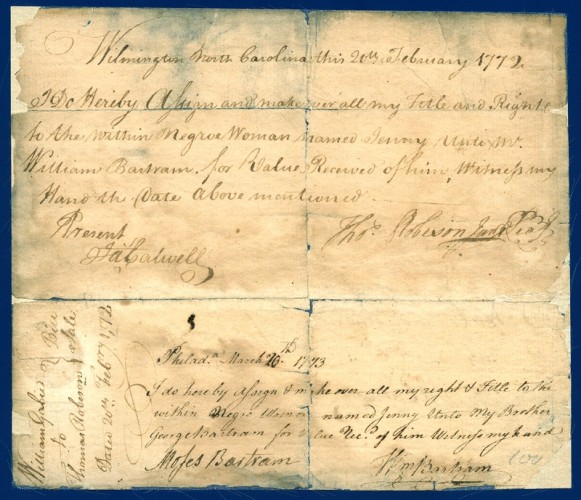 Wilmington North Carolina this 20th of February 1772
I Do Hereby Assign and make over all my Title and Right
to the within Negroe Woman named Jenny Unto Mr.
William Bartram, for Value Received of him, Witness my
Hand the Date Above mentioned.
Present
Thos. Robeson
Jas. Calwell
Philada. March 20th 1773
I do hereby Assign & make over all my right & Title to the
within Negro Woman named Jenny Unto My Brother
George Bartram for Value Recd. of him Witness my hand
Moses Bartram
Wm Bartram
Bill
to
Thomas Robeson Sale
Dated 20th Febry 1772